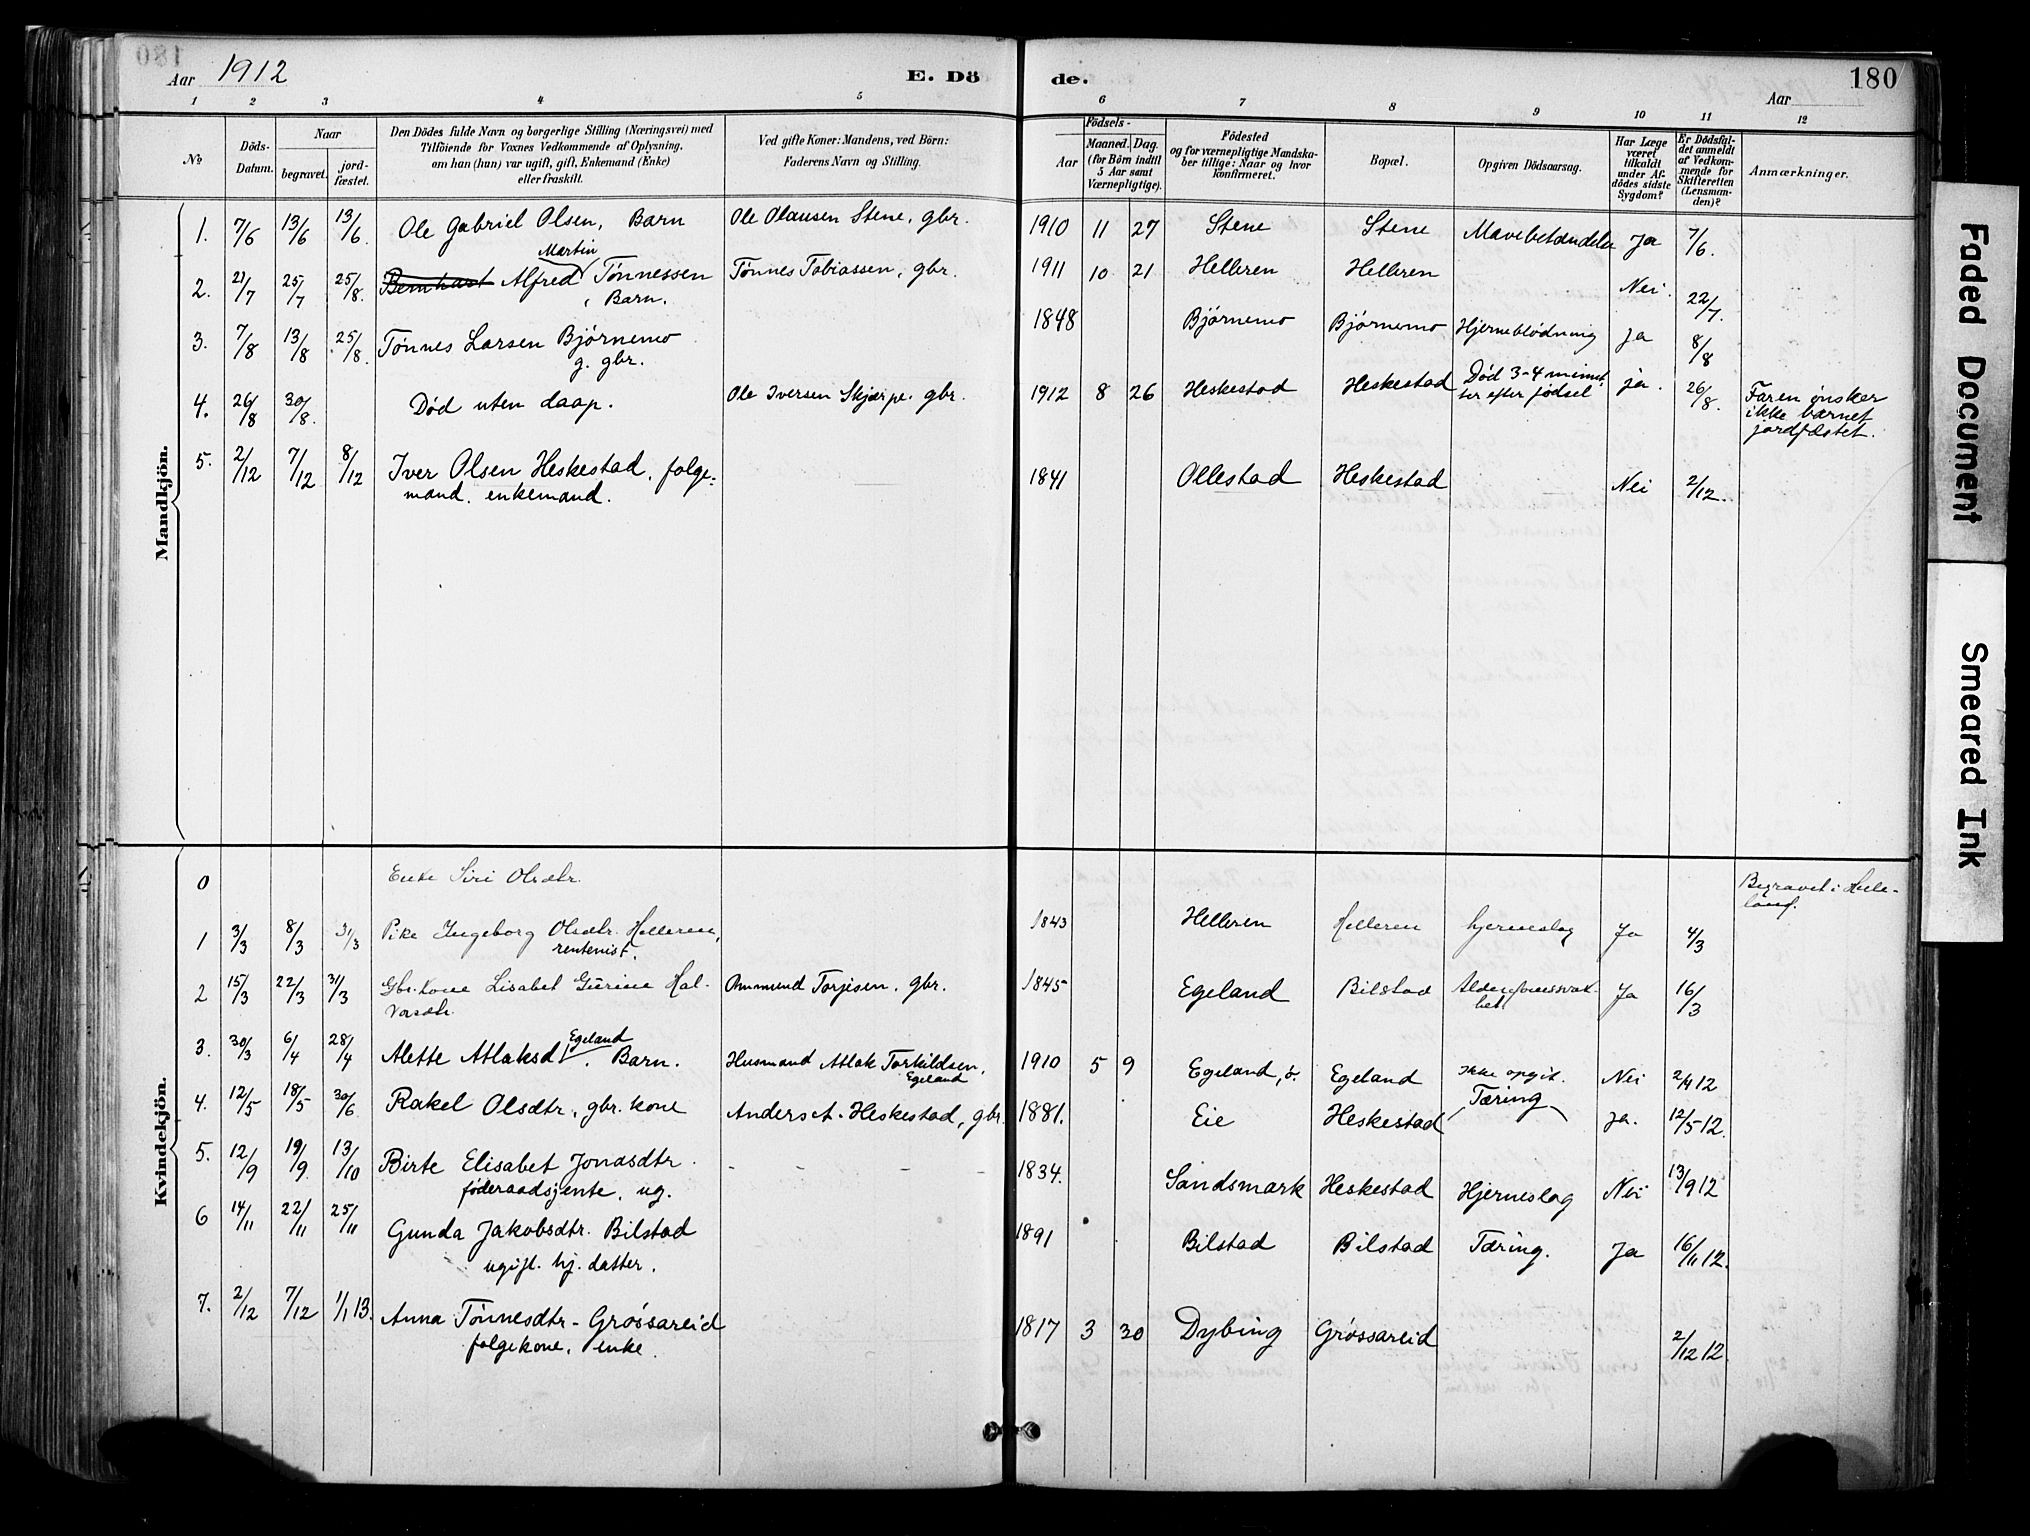 180
Aar 1912
E. Dö
de.
Aar
180
1 2 3 4 5 6 7 8 9 10 11 12
No
Döds-Datum.
Naar
begravet.
jordfæstet.
Den Dödes fulde Navn og borgerlige Stilling (Næringsvei) med
Tilföiende for Voxnes Vedkommende af Oplysning,
om han (hun) var ugift, gift, Enkemand (Enke)
eller fraskilt.
Ved gifte Koner: Mandens, ved Börn:
Faderens Navn og Stilling.
Födsels-
Aar
Maaned. Dag.
(for Börn indtil
5 Aar samt
Værnepligtige).
Födested
og for værnepligtige Mandska-
ber tillige: Naar og hvor
konfirmeret.
Bopæl.
Opgiven Dödsaarsag.
Har Læge
været
tilkaldt
under Af-
dödes sidste
Sygdom?
Er Dödsfal-
det anmeldt
af Vedkom-
mende for
Skifteretten
(Lensman-
den)?
Anmærkninger.
Mandkjön.
1. 7/6 13/6 13/6. Ole Gabriel Olsen, Barn Ole Olausen Stene, gbr. 1910 11 27 Stene Stene Mavebetændelse Ja 7/6.
Martin
2. 21/7 25/7 25/8. Bernhart Alfred Tønnessen Tønnes Tobiassen, gbr. 1911 10 21 Helleren Helleren Nei. 22/7.
Barn.
3. 7/8 13/8 25/8. Tønnes Larsen Bjørnemo 1848 Bjørnemo Bjørnemo Hjerneblødning Ja 8/8
g. gbr.
4. 26/8 30/8. Død uten daap. Ole Iversen Skjærpe. gbr. 1912 8 26 Heskestad Heskestad Død 3-4 minut-
ter efter fødsel ja. 26/8. Faren ønsker
ikke barnet
jordfæstet.
5. 2/12 7/12 8/12 Iver Olsen Heskestad, folge-
mand. enkemand. 1841 Ollestad Heskestad Nei 2/12.
Kvindekjön.
0 Enke Siri Olsdtr. Begravet i Hele-
land.
1 3/3 8/3 31/3 Pike Ingeborg Olsdtr. Helleren, 1843 Helleren Helleren hjerneslag Ja 4/3
rentenist.
2 15/3 22/3 31/3 Gbr.kone Lisabet Gurine Hal-
vorsdtr. Ommund Torjesen, gbr. 1845 Egeland Bilstad Ja 16/3
Egeland
3. 30/3 6/4 28/4 Alette Atlaksd. Barn. Husmand Atlak Torkildsen, 1910 5 9 Egeland, ö. Egeland ikke opgit. Nei 2/4 12
Egeland
4. 12/5 18/5 30/6 Rakel Olsdtr, gbr. kone Anders A. Heskestad, gbr. 1881. Eie Heskestad Tæring Ja. 12/5 12.
5. 12/9 19/9 13/10 Birte Elisabet Jonasdtr. - - - 1834. Sandsmark Heskestad Hjerneslag Nei 13/9 12
föderaadsjente, ug.
6 14/11 22/11 25/11 Gunda Jakobsdtr. Bilstad 1891 Bilstad Bilstad Tæring. Ja 16/11 12.
ugift. hj. datter.
7. 2/12 7/12 1/1 13. Anna Tønnesdtr - Grøssareid 1817 3 30 Dybing Grøssareid 2/12 12.
folgekone, enke
Faded Document
Smeared Ink